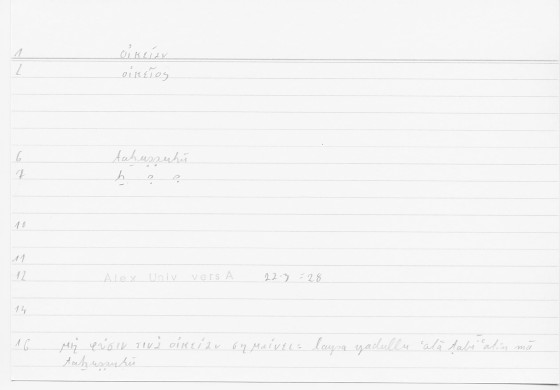 1 οἰκείαν
2 οἰκεῖος
6 taḫuṣṣuhū
7 ḫ ṣ ṣ
10
11
12 Alex Univ vers A 22.7 = 28
14
16 μὴ φύσιν τινὰ οἰκείαν σημαίνει = laysa yadullu ʿalā ṭabīʿatin mā
taḫuṣṣuhū